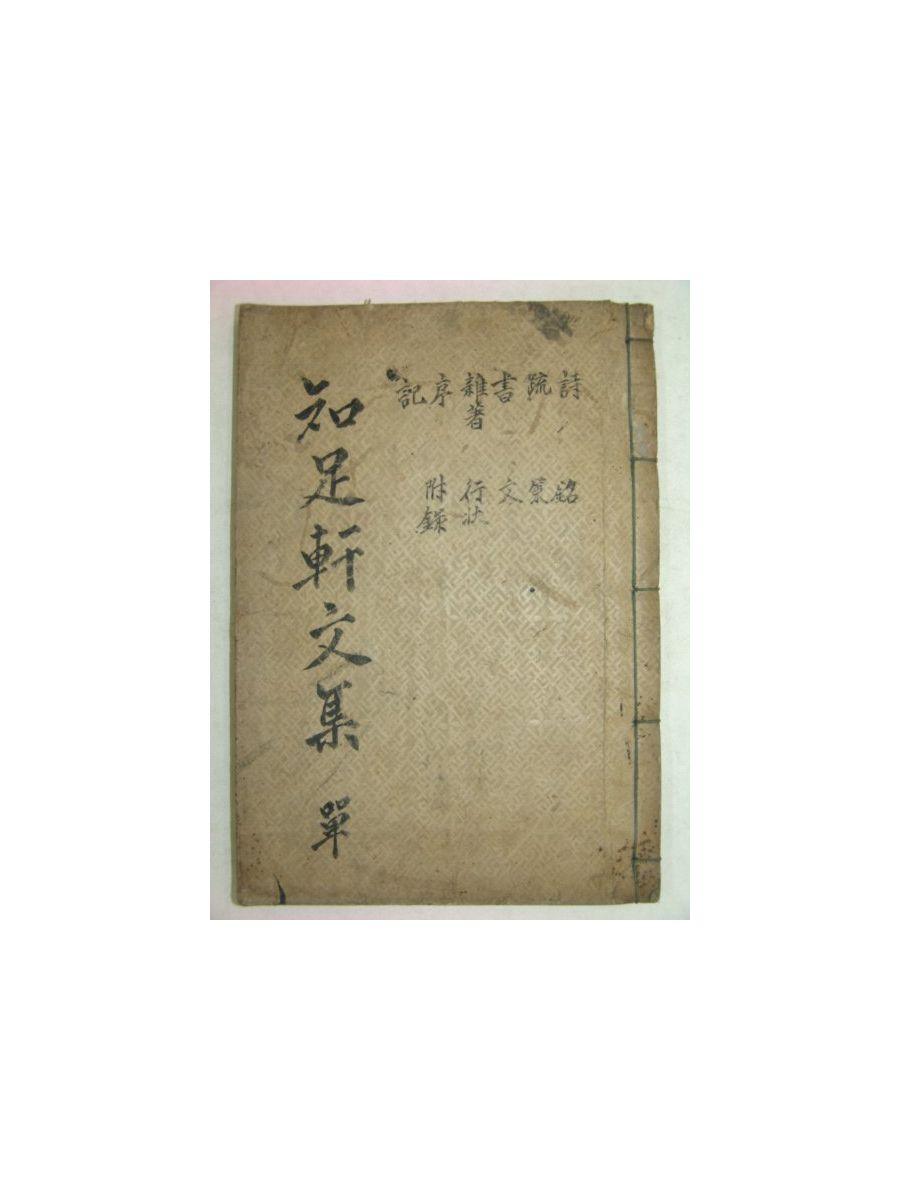 詩
疏
書
雜著
序
記
銘
文
行状
附錄
知足軒文集 單